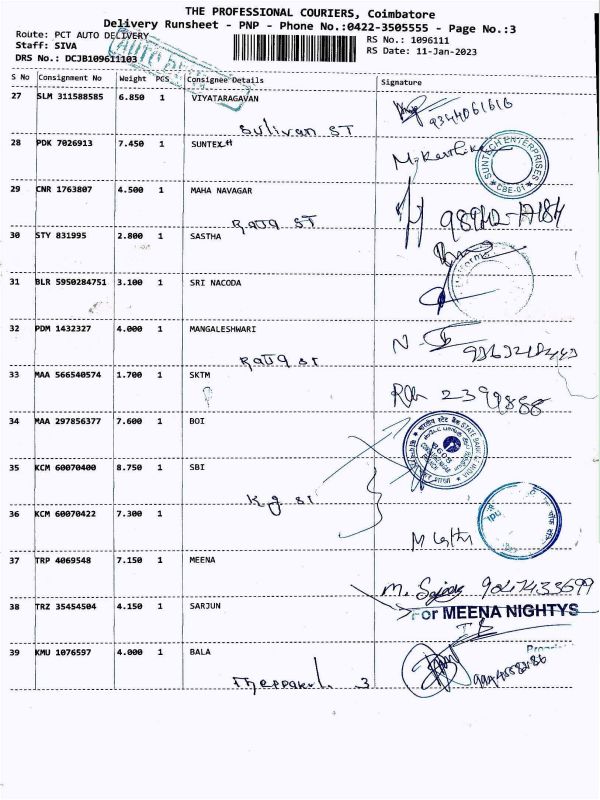 THE PROFESSIONAL COURIERS, Coimbatore
Delivery Runsheet - PNP - Phone No.:0422-3505555 - Page No.:3
Route: PCT AUTO DELIVERY
RS No.: 1096111
Staff: SIVA
RS Date: 11-Jan-2023
DRS No.: DCJB109611103
S No Consignment No Weight PCS Consignee Details Signature
27 SLM 311588585 6.850 1 VIYATARAGAVAN
9344061616
Sulivan ST
28 PDK 7026913 7.450 1 SUNTEX
M. Karthika
SUNTECH ENTERPRISES
CBE-01
29 CNR 1763807 4.500 1 MAHA NAVAGAR
Raja ST
30 STY 831995 2.800 1 SASTHA
31 BLR 5950284751 3.100 1 SRI NACODA
32 PDM 1432327 4.000 1 MANGALESHWARI
Raja st
33 MAA 566540574 1.700 1 SKTM
2399888
34 MAA 297856377 7.600 1 BOI
भारतीय स्टेट बैंक STATE BANK OF INDIA
35 KCM 60070400 8.750 1 SBI
K.g st
36 KCM 60070422 7.300 1
37 TRP 4069548 7.150 1 MEENA
9047433699
38 TRZ 35454504 4.150 1 SARJUN
For MEENA NIGHTYS
39 KMU 1076597 4.000 1 BALA
3